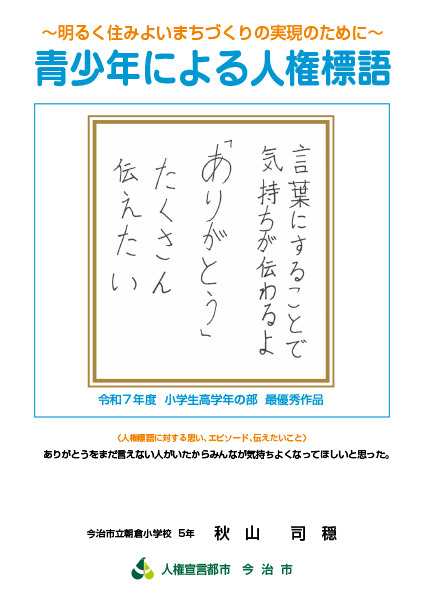 ～明るく住みよいまちづくりの実現のために～
青少年による人権標語
言葉にすることで
気持ちが伝わるよ
「ありがとう」
たくさん
伝えたい
令和７年度 小学生高学年の部 最優秀作品
〈人権標語に対する思い、エピソード、伝えたいこと〉
ありがとうをまだ言えない人がいたからみんなが気持ちよくなってほしいと思った。
今治市立朝倉小学校 5年 秋山 司穏
人権宣言都市 今治市